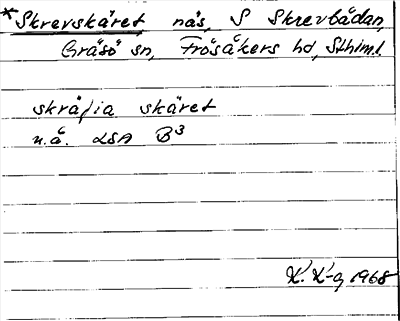 *Skrevskäret, näs, S Skrevbådan,
Gräsö sn, Frösåkers hd, Sthlml.
skråfia skäret
n.å. LSA B³
K. K-g, 1968